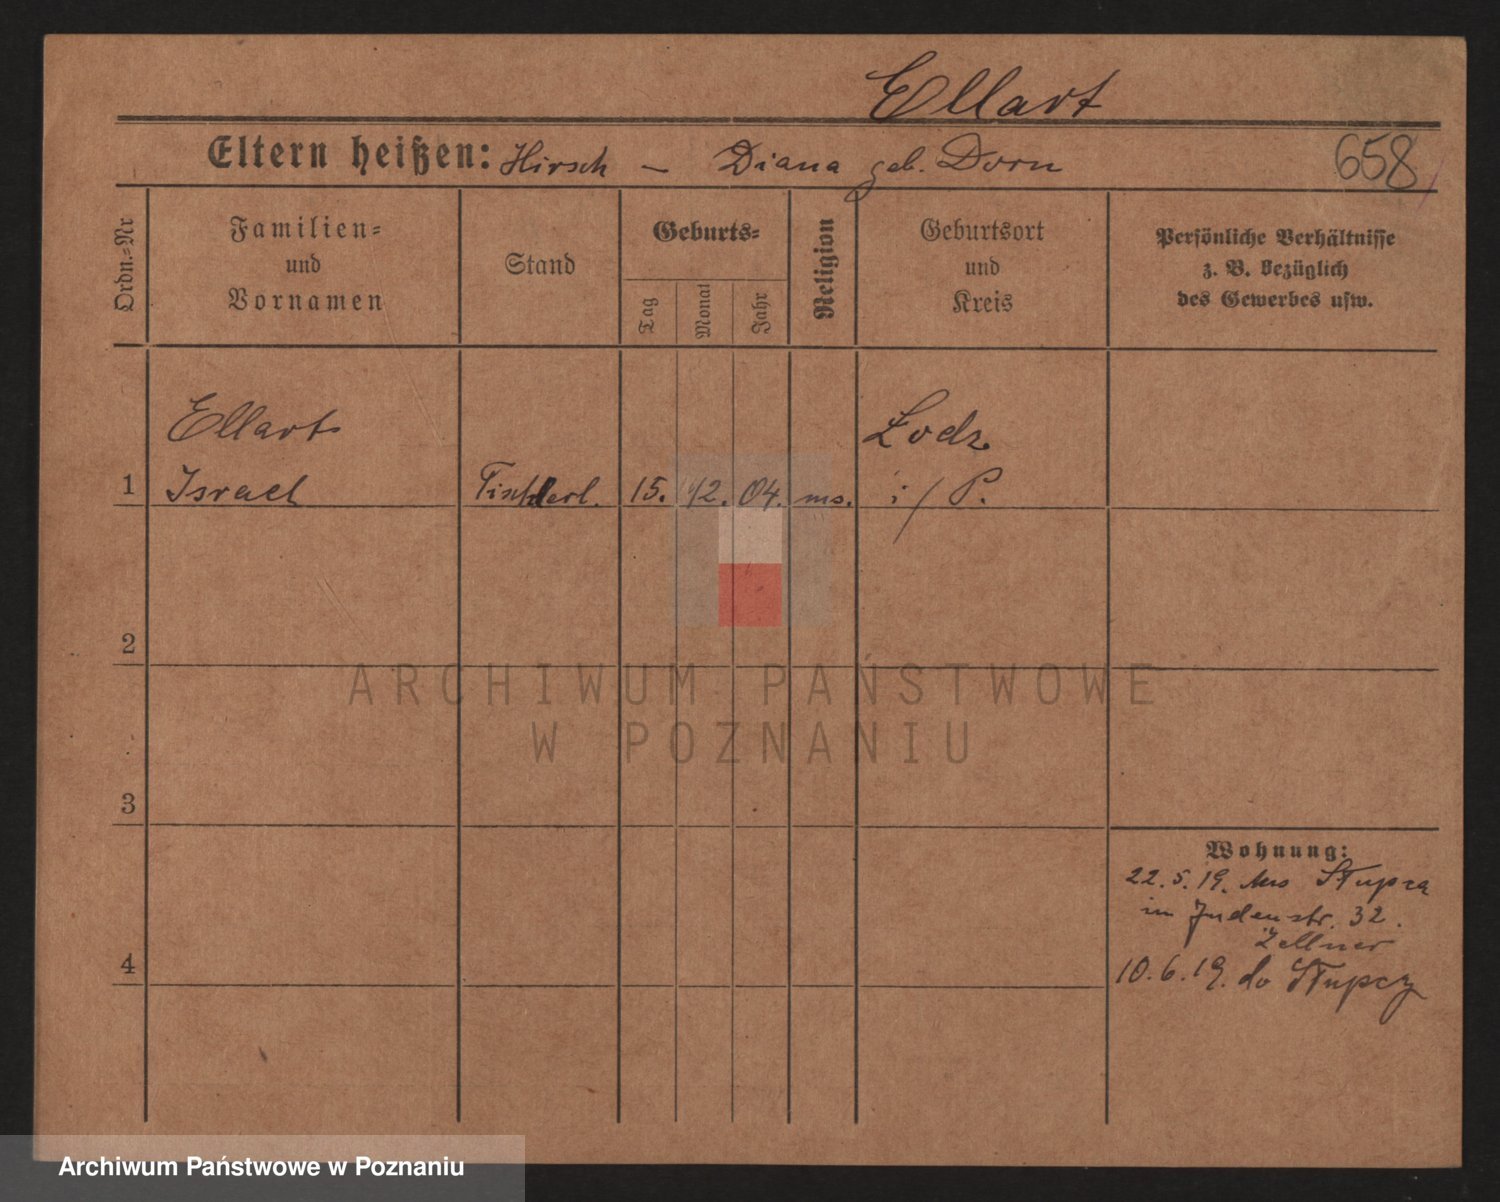 Ellart
Eltern heißen: Hirsch – Diana geb. Dorn
658
Ordn.-Nr
Familien-
und
Vornamen
Stand
Geburts-
Tag
Monat
Jahr
Religion
Geburtsort
und
Kreis
Persönliche Verhältnisse
z. B. bezüglich
des Gewerbes usw.
Ellart
Lodz
1 Israel Tischlerl. 15. 12. 04. ms. i/P.
2
ARCHIWUM PAŃSTWOWE
W POZNANIU
3
Wohnung:
22.5.19. Aus Słupca
in Judenstr. 32.
Zellner
4
10.6.19. do Słupcy
Archiwum Państwowe w Poznaniu